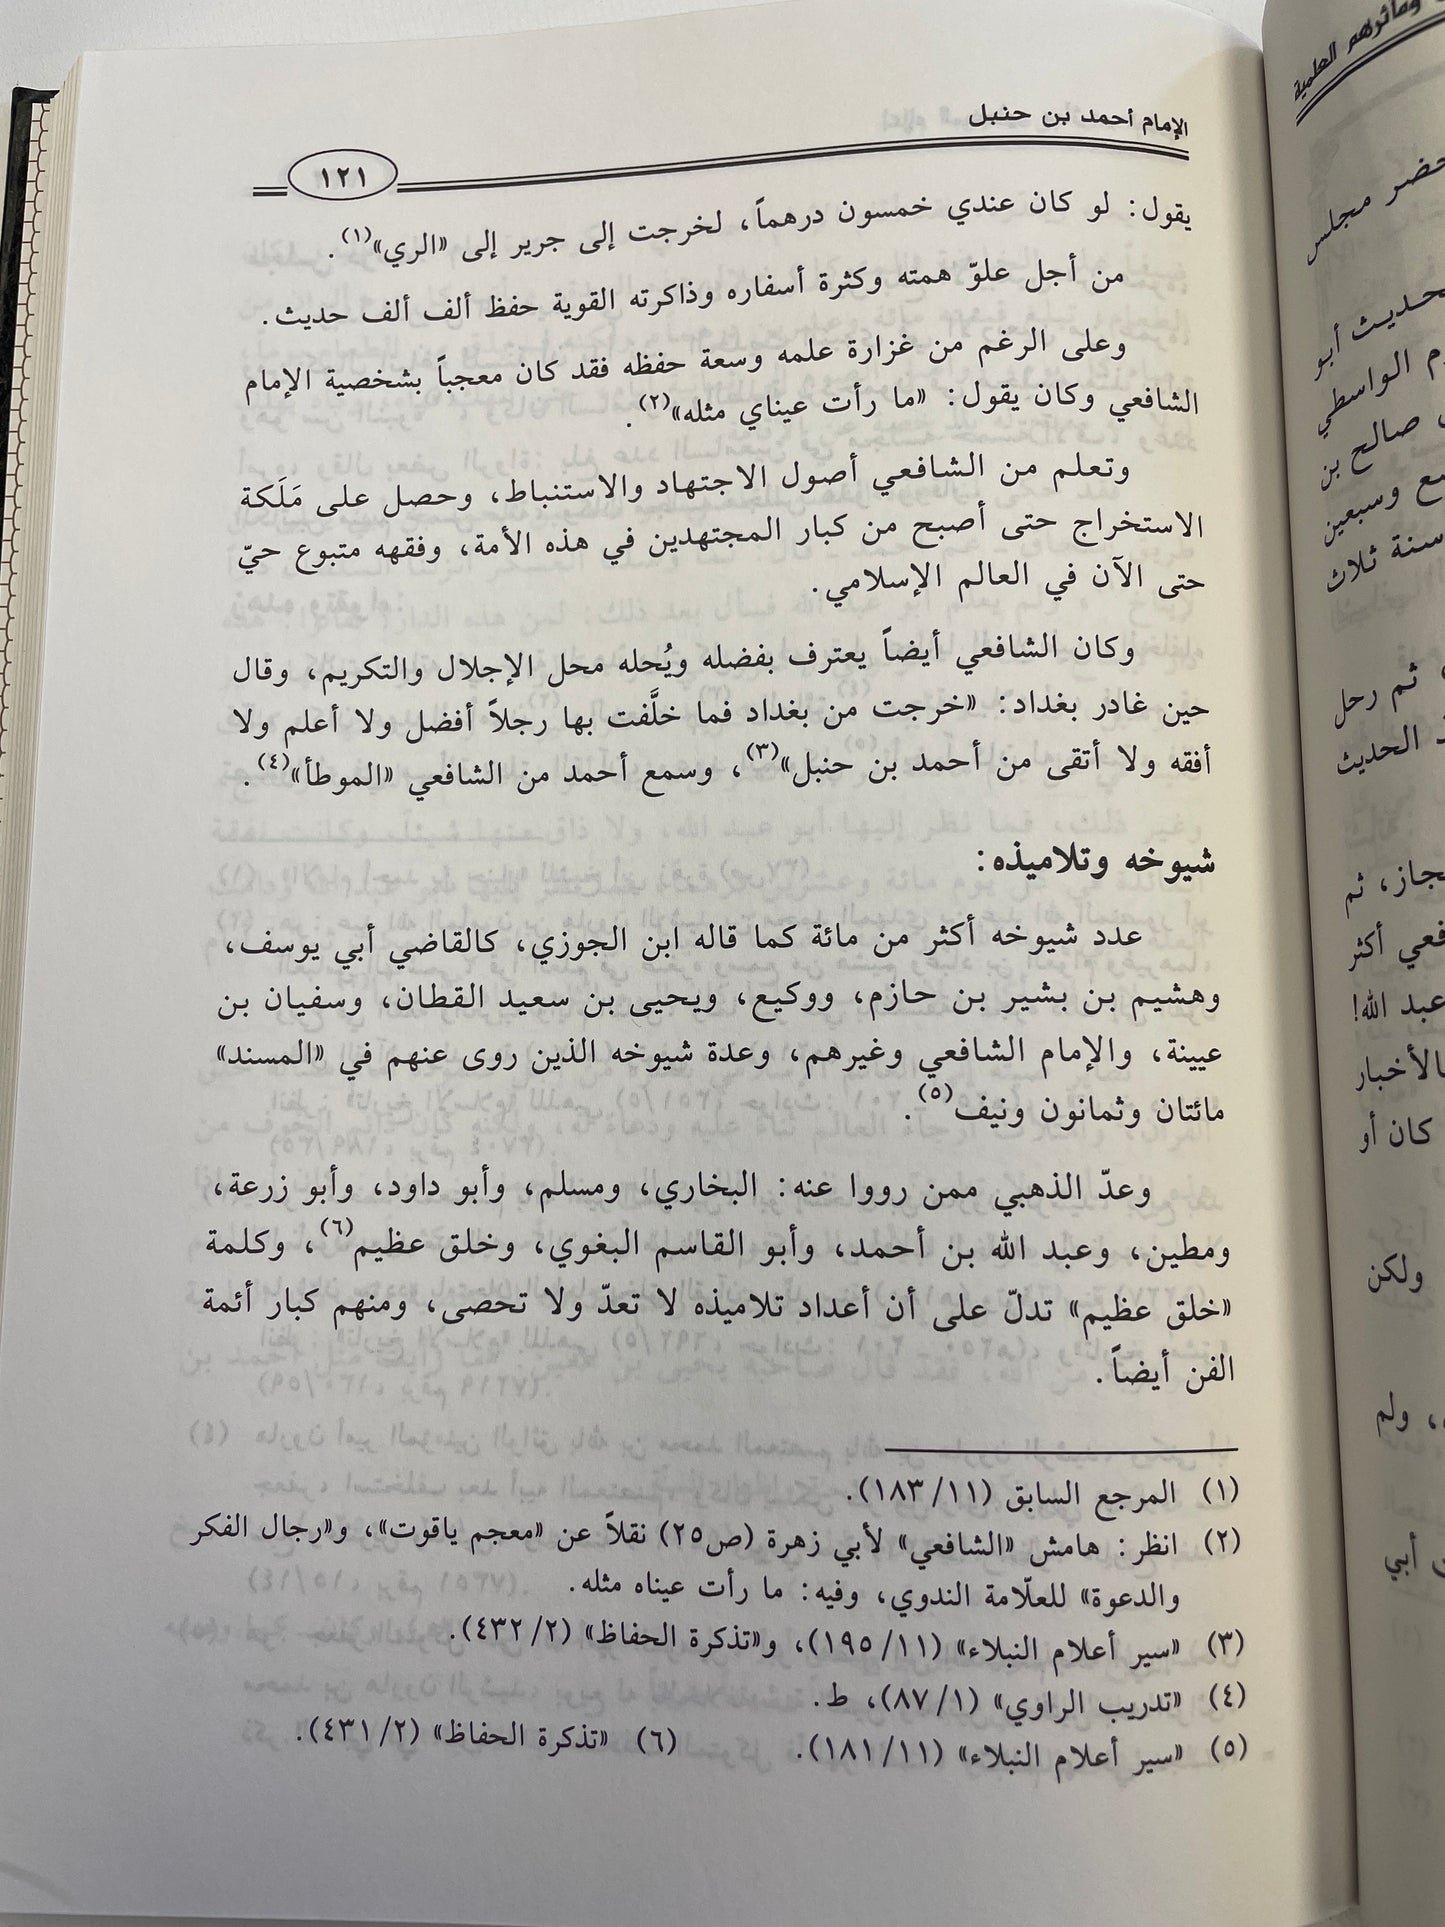 الإمام أحمد بن حنبل
١٢١
يقول: لو كان عندي خمسون درهماً، لخرجت إلى جرير إلى «الري»(١).
من أجل علوّ همته وكثرة أسفاره وذاكرته القوية حفظ ألف ألف حديث.
وعلى الرغم من غزارة علمه وسعة حفظه فقد كان معجباً بشخصية الإمام
الشافعي وكان يقول: «ما رأت عيناي مثله»(٢).
وتعلم من الشافعي أصول الاجتهاد والاستنباط، وحصل على مَلَكة
الاستخراج حتى أصبح من كبار المجتهدين في هذه الأمة، وفقهه متبوع حيّ
حتى الآن في العالم الإسلامي.
وكان الشافعي أيضاً يعترف بفضله ويُحله محل الإجلال والتكريم، وقال
حين غادر بغداد: «خرجت من بغداد فما خلَّفت بها رجلاً أفضل ولا أعلم ولا
أفقه ولا أتقى من أحمد بن حنبل»(٣)، وسمع أحمد من الشافعي «الموطأ»(٤).
شيوخه وتلاميذه:
عدد شيوخه أكثر من مائة كما قاله ابن الجوزي، كالقاضي أبي يوسف،
وهشيم بن بشير بن حازم، ووكيع، ويحيى بن سعيد القطان، وسفيان بن
عيينة، والإمام الشافعي وغيرهم، وعدة شيوخه الذين روى عنهم في «المسند»
مائتان وثمانون ونيف(٥).
وعدّ الذهبي ممن رووا عنه: البخاري، ومسلم، وأبو داود، وأبو زرعة،
ومطين، وعبد الله بن أحمد، وأبو القاسم البغوي، وخلق عظيم(٦)، وكلمة
«خلق عظيم» تدلّ على أن أعداد تلاميذه لا تعدّ ولا تحصى، ومنهم كبار أئمة
الفن أيضاً.
(١) المرجع السابق (١١/١٨٣).
(٢) انظر: هامش «الشافعي» لأبي زهرة (ص٢٥) نقلاً عن «معجم ياقوت»، و«رجال الفكر
والدعوة» للعلّامة الندوي، وفيه: ما رأت عيناه مثله.
(٣) «سير أعلام النبلاء» (١١/١٩٥)، و«تذكرة الحفاظ» (٢/٤٣٢).
(٤) «تدريب الراوي» (١/٨٧)، ط.
(٥) «سير أعلام النبلاء» (١١/١٨١). (٦) «تذكرة الحفاظ» (٢/٤٣١).
ومآثرهم العلمية
حضر مجلس
أبو
الواسطي
صالح بن
وسبعين
سنة ثلاث
ثم رحل
الحديث
ثم
أكثر
عبد الله!
كان أو
ولكن
، ولم
أبي